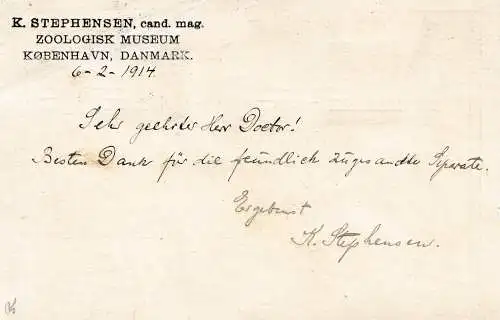 K. STEPHENSEN, cand. mag.
ZOOLOGISK MUSEUM
KØBENHAVN, DANMARK.
6-2-1914.
Sehr geehrter Herr Doctor!
Besten Dank für die freundlich zugesandte Separate.
Ergebenst
K. Stephensen.